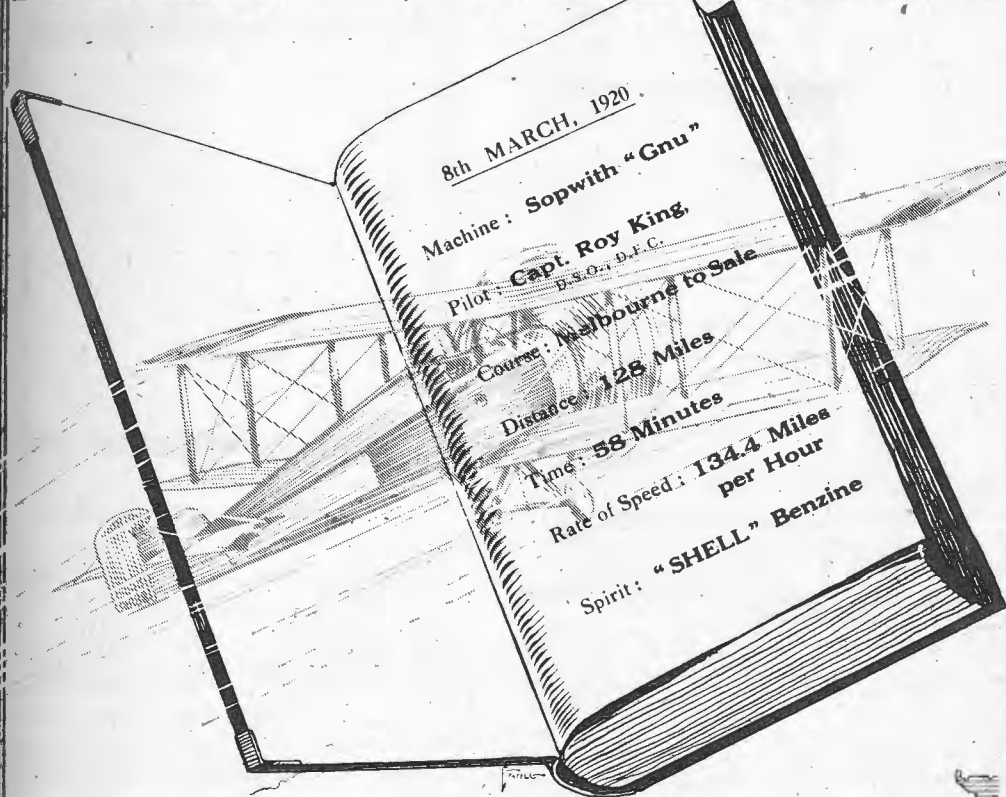 8th MARCH, 1920
Machine: Sopwith "Gnu"
Pilot: Capt. Roy King,
D.S.O., D.F.C.
Course: Melbourne to Sale
Distance: 128 Miles
Time: 58 Minutes
Rate of Speed: 134.4 Miles
per Hour
Spirit: "SHELL" Benzine